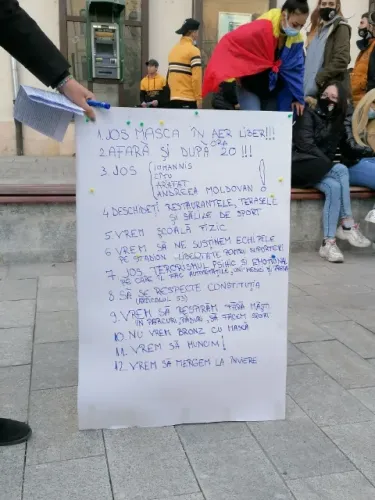 1. JOS MASCA ÎN AER LIBER!!!
2. AFARĂ ȘI DUPĂ ORA 20!!!
3. JOS IOHANNIS
CÎȚU
ARAFAT
ANDREEA MOLDOVAN !
4 DESCHIDEȚI RESTAURANTELE, TERASELE
ȘI SĂLILE DE SPORT
5. VREM ȘCOALĂ FIZIC
6 VREM SĂ NE SUSȚINEM ECHIPELE
PE STADION - LIBERTATE PENTRU SUPORTERI
7 JOS TERORISMUL PSIHIC SI EMOȚIONAL
PE CARE IL FAC AUTORITĂȚILE,
8 SĂ SE RESPECTE CONSTITUȚIA
(ARTICOLUL 53)
9 VREM SĂ RESPIRĂM FĂRĂ MĂȘTI
ÎN PARCURI, PĂDURI, SĂ FACEM SPORT
10. NU VREM BRONZ CU MASCĂ
11. VREM SĂ MUNCIM!
12. VREM SĂ MERGEM LA ÎNVIERE